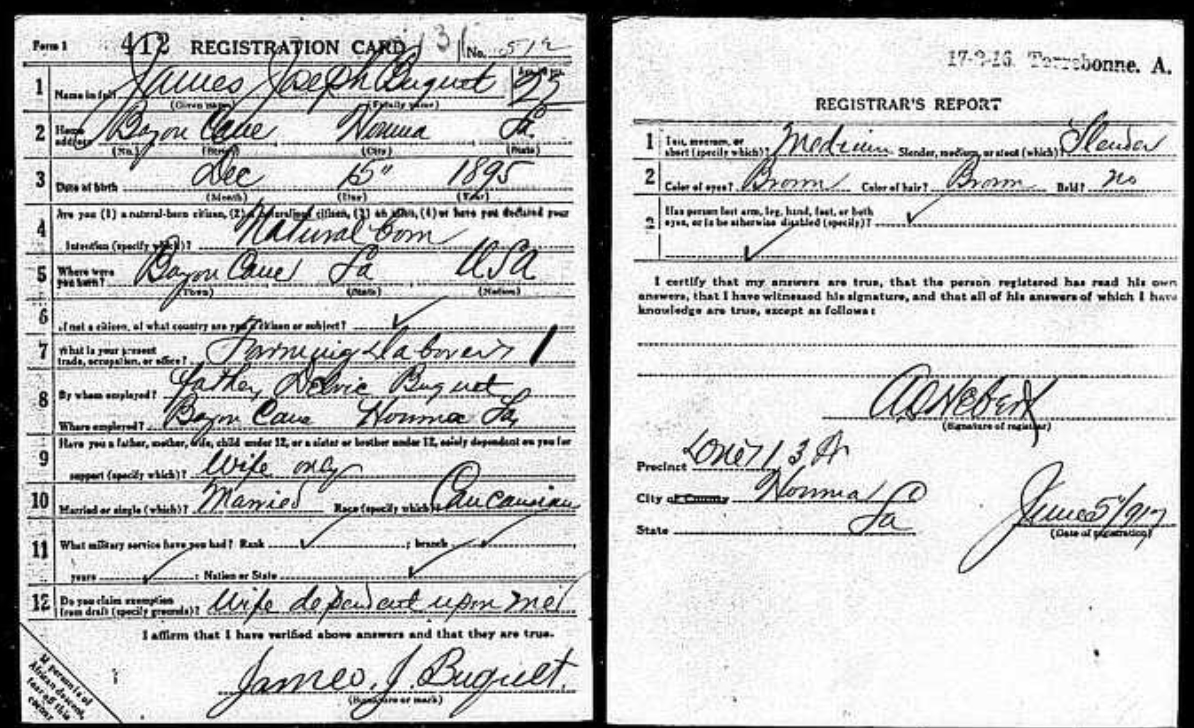 Form 1 412 REGISTRATION CARD 31 No. 512
1 Name in full James Joseph Buquet 25
(Given name) (Family name) Age, in yrs.
2 Home address Bayou Cane Houma La.
(No.) (Street) (City) (State)
3 Date of birth Dec 15" 1895
(Month) (Day) (Year)
4 Are you (1) a natural-born citizen, (2) a naturalized citizen, (3) an alien, (4) or have you declared your
intention (specify which)? Natural born
5 Where were you born? Bayou Cane La USA
(Town) (State) (Nation)
6 If not a citizen, of what country are you a citizen or subject?
7 What is your present trade, occupation, or office? Farming Laborer 1
8 By whom employed? Father, Delvic Buquet
Where employed? Bayou Cane Houma La,
9 Have you a father, mother, wife, child under 12, or a sister or brother under 12, solely dependent on you for
support (specify which)? Wife only
10 Married or single (which)? Married Race (specify which)? Caucausian
11 What military service have you had? Rank ; branch
years ; Nation or State
12 Do you claim exemption from draft (specify grounds)? Wife dependent upon me
I affirm that I have verified above answers and that they are true.
James. J. Buquet.
(Signature or mark)
If person is of African descent, tear off this corner
17-2-16. Terrebonne. A.
REGISTRAR'S REPORT
1 Tall, medium, or short (specify which)? Medium Slender, medium, or stout (which)? Slender
2 Color of eyes? Brown Color of hair? Brown Bald? no
3 Has person lost arm, leg, hand, foot, or both
eyes, or is he otherwise disabled (specify)?
I certify that my answers are true, that the person registered has read his own
answers, that I have witnessed his signature, and that all of his answers of which I have
knowledge are true, except as follows:
(Signature of registrar)
Precinct 3
City or County Houma
State La June 5/917
(Date of registration)